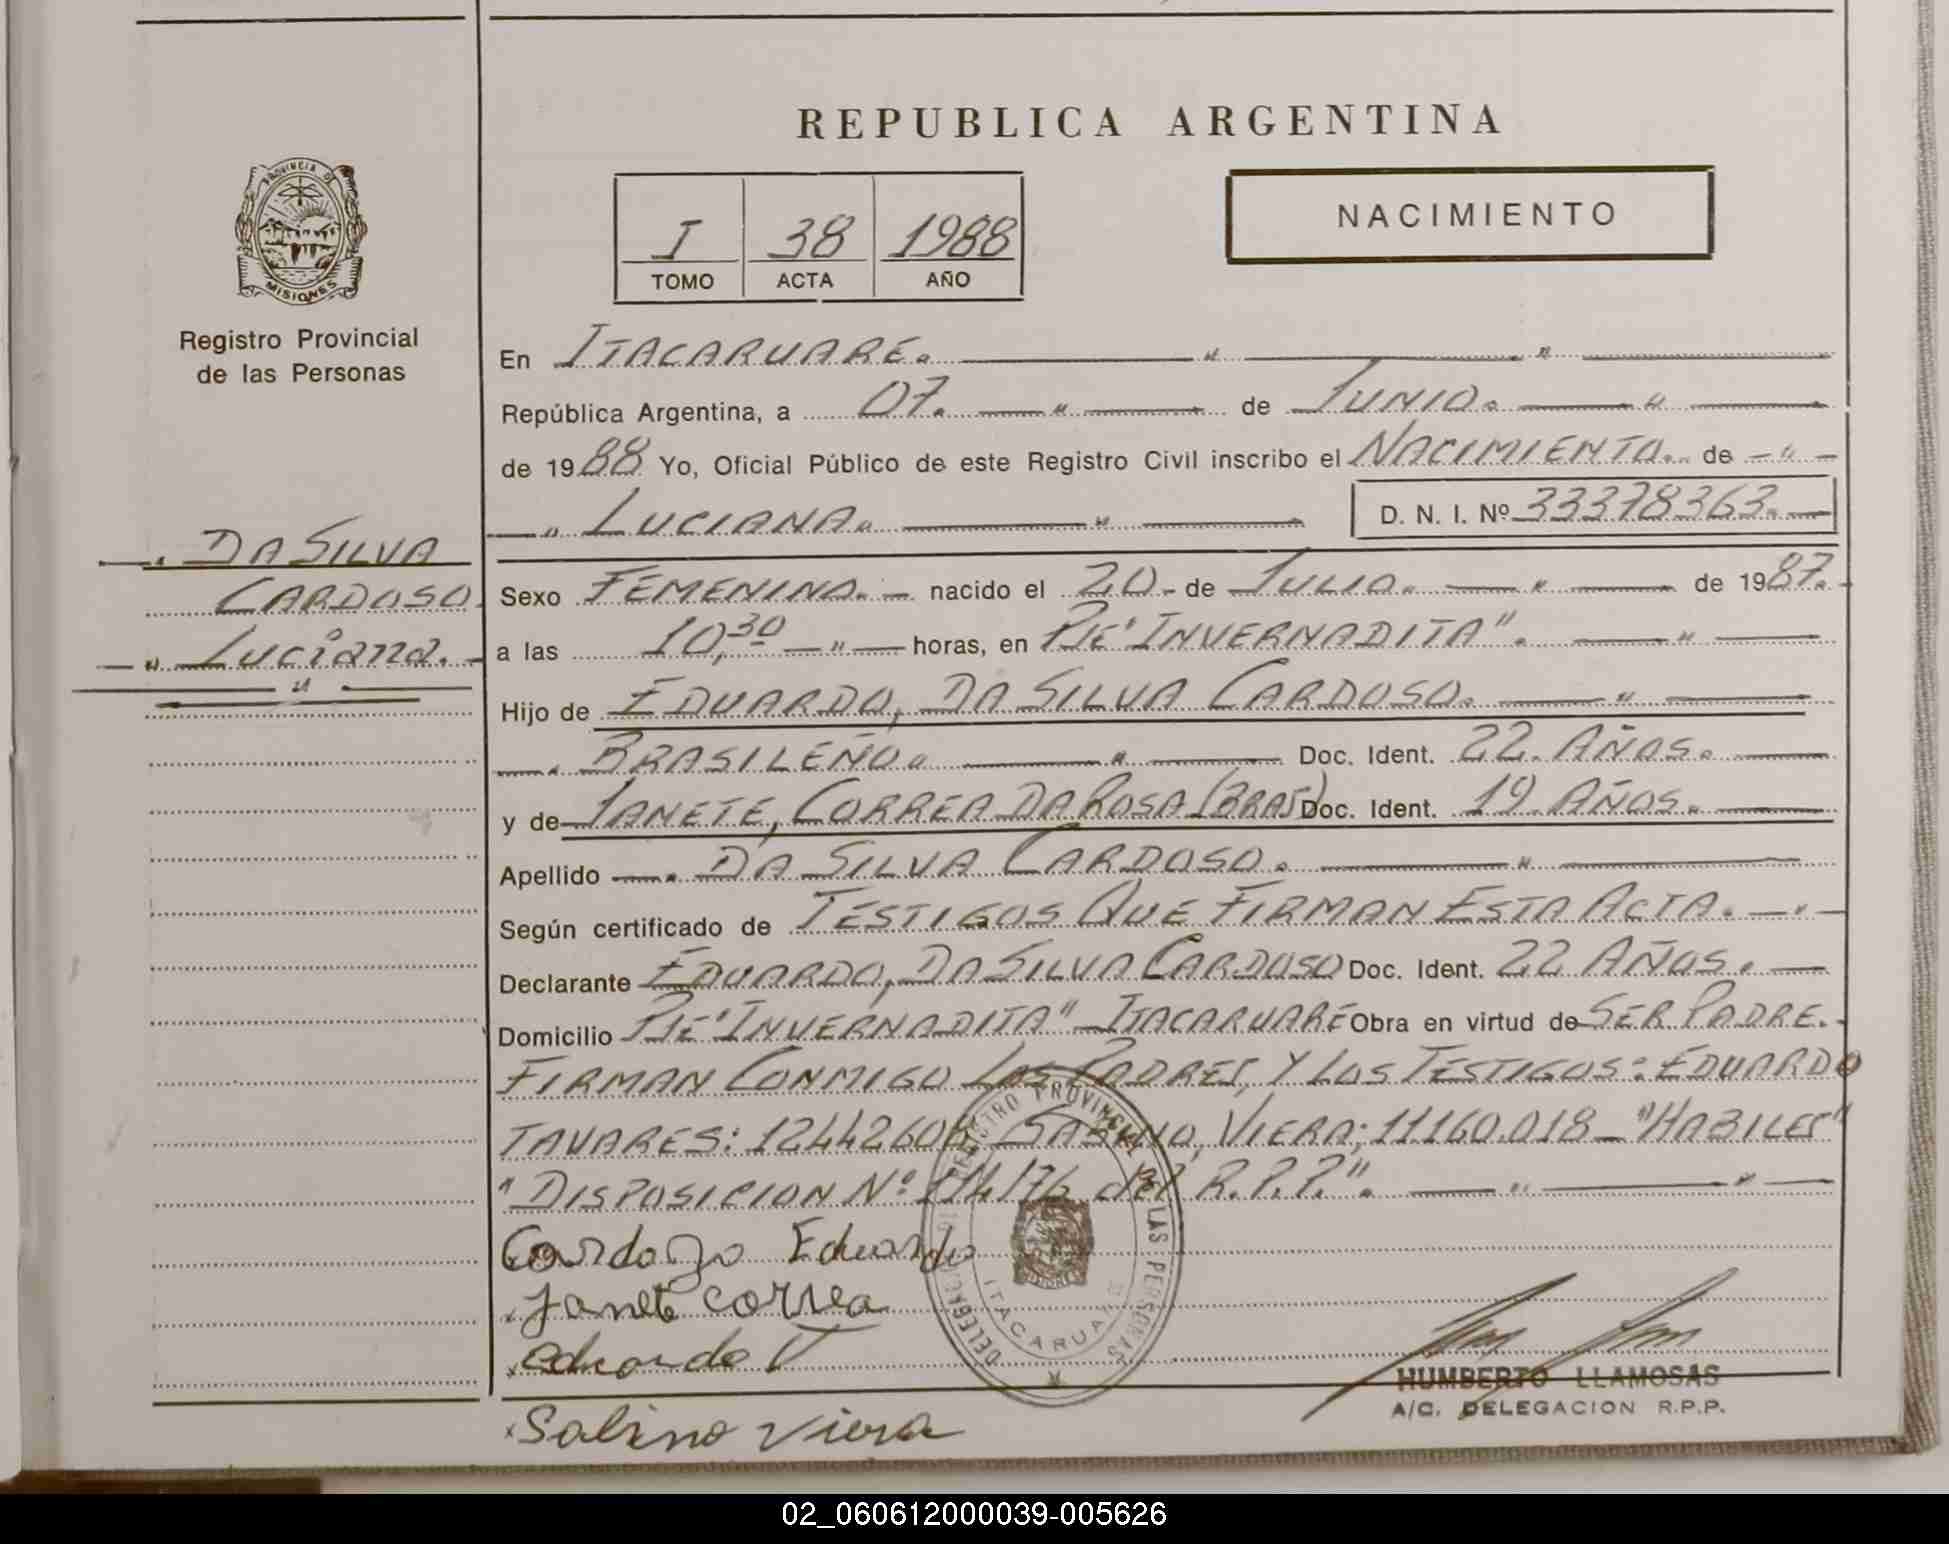 REPUBLICA ARGENTINA
PROVINCIA DE
MISIONES
Registro Provincial
de las Personas
I 38 1988
TOMO ACTA AÑO
NACIMIENTO
En ITACARUARE.
República Argentina, a 07. de JUNIO.
de 1988 Yo, Oficial Público de este Registro Civil inscribo el NACIMIENTO. de
LUCIANA. D. N. I. Nº 33378363.
DA SILVA
CARDOSO
Luciana.
Sexo FEMENINO. nacido el 20 de JULIO. de 1987.
a las 10,30 horas, en PJE "INVERNADITA".
Hijo de EDUARDO, DA SILVA CARDOSO.
BRASILEÑO. Doc. Ident. 22. AÑOS.
y de JANETE, CORREA DA ROSA (BRAS) Doc. Ident. 19 AÑOS.
Apellido DA SILVA CARDOSO.
Según certificado de TESTIGOS QUE FIRMAN ESTA ACTA.
Declarante EDUARDO, DA SILVA CARDOSO Doc. Ident. 22 AÑOS.
Domicilio PJE "INVERNADITA" ITACARUARE Obra en virtud de SER PADRE.
FIRMAN CONMIGO LOS PADRES, Y LOS TESTIGOS: EDUARDO
TAVARES: 12442608 SABINO, VIERA; 11160.018 "HABILES"
"DISPOSICION Nº 114/76 del R.P.P.".
Cardozo Eduardo
Janete correa
eduardo T
Sabino viera
REGISTRO PROVINCIAL DE LAS PERSONAS
DELEGACION
ITACARUARE
HUMBERTO LLAMOSAS
A/C. DELEGACION R.P.P.
02_060612000039-005626